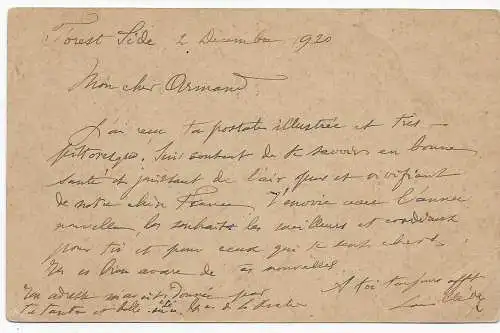 Forest Side, 2 Décembre 1920
Mon cher Armand,
J'ai reçu ta postale illustrée et très
pittoresque. Suis content de te savoir en bonne
santé et jouissant de l'air pur et vivifiant
de notre chère France. T'envoie avec l'année
nouvelle les souhaits les meilleurs et cordiaux
pour toi et pour ceux qui te sont chers.
Tu es bien avare de tes nouvelles
Ton adresse m'a été donnée par A toi toujours afft
ta tante et